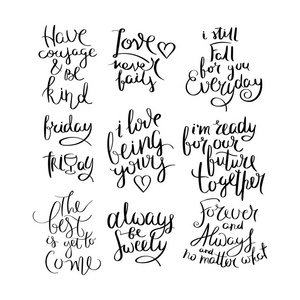 Have
courage
& Be
kind
Love
never
fails
i still
Fall
for you
Everyday
friday
FRiDay
i love
being
yours
i'm ready
for our
future
together
The
best
is yet to
Come
always
be
Sweety
Forever
and
Always
and
no matter what